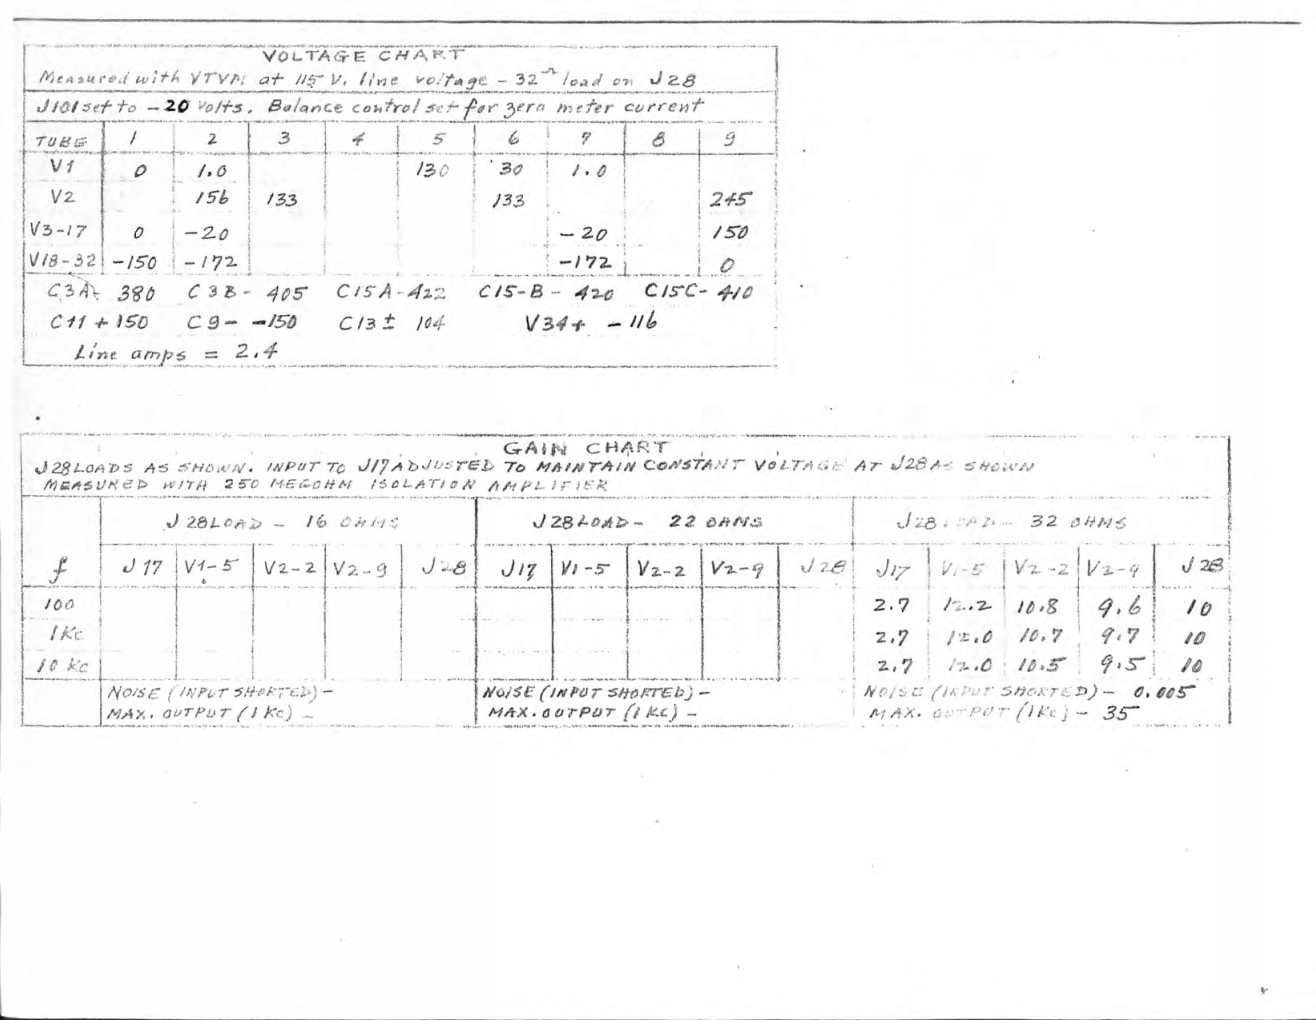 VOLTAGE CHART
Measured with VTVM at 115 V. line voltage - 32 Ω load on J28
J101 set to -20 volts. Balance control set for zero meter current
TUBE 1 2 3 4 5 6 7 8 9
V1 0 1.0 130 30 1.0
V2 156 133 133 245
V3-17 0 -20 -20 150
V18-32 -150 -172 -172 0
C3A- 380 C3B- 405 C15A-422 C15-B- 420 C15C- 410
C11 + 150 C9- -150 C13 ± 104 V34+ -116
Line amps = 2.4
GAIN CHART
J28 LOADS AS SHOWN. INPUT TO J17 ADJUSTED TO MAINTAIN CONSTANT VOLTAGE AT J28 AS SHOWN
MEASURED WITH 250 MEGOHM ISOLATION AMPLIFIER
J28 LOAD - 16 OHMS J28 LOAD- 22 OHMS J28 LOAD- 32 OHMS
f J17 V1-5 V2-2 V2-9 J28 J17 V1-5 V2-2 V2-9 J28 J17 V1-5 V2-2 V2-9 J28
100 2.7 12.2 10.8 9.6 10
1Kc 2.7 12.0 10.7 9.7 10
10 Kc 2.7 12.0 10.5 9.5 10
NOISE (INPUT SHORTED) - NOISE (INPUT SHORTED) - NOISE (INPUT SHORTED) - 0.005
MAX. OUTPUT (1 Kc) - MAX. OUTPUT (1 Kc) - MAX. OUTPUT (1Kc) - 35